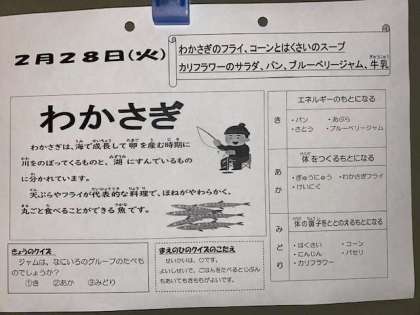 2月28日(火)
わかさぎのフライ、コーンとはくさいのスープ
カリフラワーのサラダ、パン、ブルーベリージャム、牛乳
わかさぎ
わかさぎは、海で成長して卵を産む時期に
川をのぼってくるものと、湖にすんでいるもの
に分かれています。
天ぷらやフライが代表的な料理で、ほねがやわらかく、
丸ごと食べることができる魚です。
きょうのクイズ
ジャムは、なにいろのグループのたべも
のでしょうか?
①き ②あか ③みどり
まえのひのクイズのこたえ
せいかいは、○です。
よいしせいで、ごはんをたべるとじぶんも
あいてもきもちがよいです。
き
エネルギーのもとになる
・パン ・あぶら
・さとう ・ブルーベリージャム
あか
体をつくるもとになる
・ぎゅうにゅう ・わかさぎフライ
・けいにく
みどり
体の調子をととのえるもとになる
・はくさい ・コーン
・にんじん ・パセリ
・カリフラワー